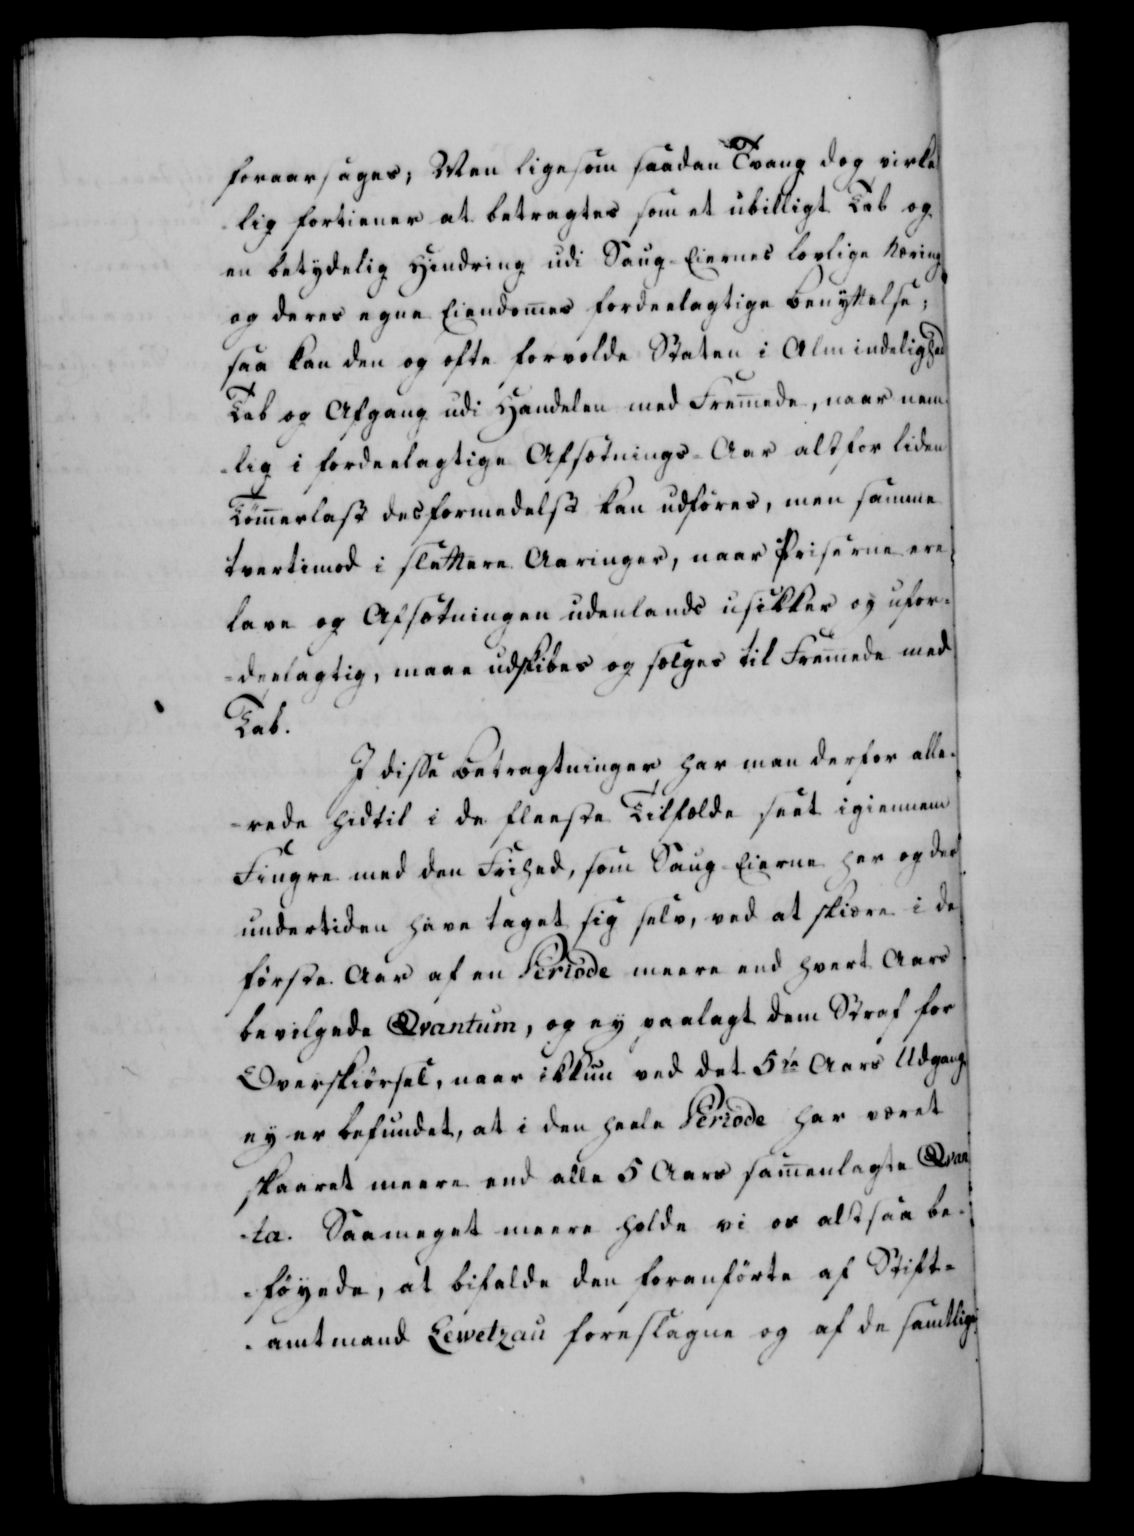 foraarsages; Men ligesom saadan Tvang dog virke
lig fortiener at betragtes som et ubilligt Tab og
en betydelig Hindring udi Saug-Eiernes lovlige Næring
og deres egne Eiendomes fordeelagtige Benyttelse;
saa kan den og ofte forvolde Staten i Almindelighed
Tab og Afgang udi Handelen med Fremede, naar nem-
-lig i fordeelagtige Afsætnings-Aar altfor liden
Tømerlast desformedelst kan udføres, men samme
tvertimod i slettere Aaringer, naar Priserne ere
lave og Afsætningen udenlands usikker og ufor-
-deelagtig, maae udskibes og sælges til Fremede med
Tab.
I disse Betragtninger har man derfor alle-
-rede hidtil i de fleeste Tilfælde seet igiennem
Fingre med den Frihed, som Saug-Eierne her og der
undertiden have taget sig selv, ved at skiære i de
første Aar af en Periode meere end hvert Aars
bevilgede Qvantum, og ey paalagt dem Straf for
Overskiørsel, naar ikkun ved det 5te Aars Udgang
ey er befundet, at i den heele Periode har været
skaaret meere end alle 5 Aars samenlagte Qvan
-ta. Saameget meere holde vi os altsaa be-
-føyede, at bifalde den foranførte af Stift-
-amtmand Lewetzau foreslagne og af de samtlige